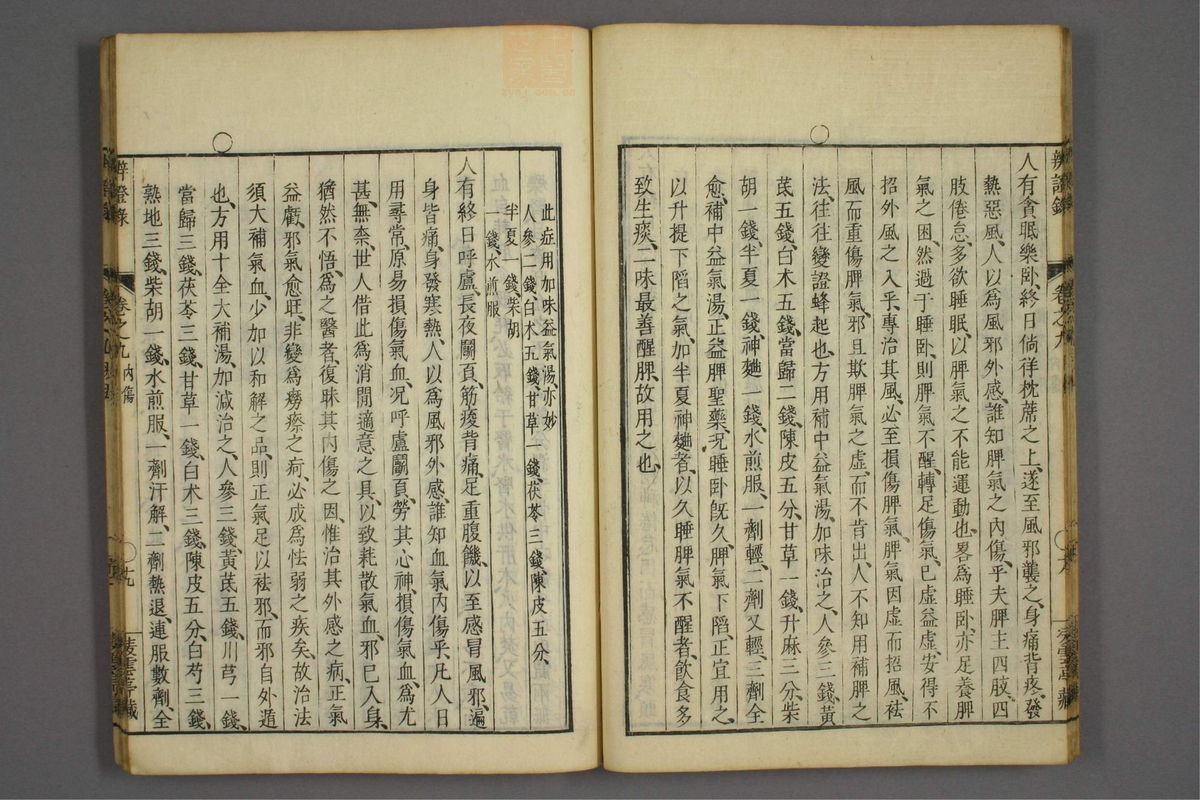 人有貪眠樂卧、終日倘徉枕蓆之上、遂至風邪襲之、身痛背疼、發
熱惡風、人以為風邪外感、誰知脾氣之內傷乎、夫脾主四肢、四
肢倦怠、多欲睡眠、以脾氣之不能運動也、畧為睡卧、亦足養脾
氣之困、然過于睡卧、則脾氣不醒、轉足傷氣、已虛益虛、安得不
招外風之入乎、專治其風、必至損傷脾氣、脾氣因虛而招風、祛
風而重傷脾氣、邪且欺脾氣之虛、而不肯出、人不知用補脾之
法、往往變證蜂起也、方用補中益氣湯、加味治之、人參三錢、黃
芪五錢、白术五錢、當歸二錢、陳皮五分、甘草一錢、升麻三分、柴
胡一錢、半夏一錢、神麯一錢、水煎服、一劑輕、二劑又輕、三劑全
愈、補中益氣湯、正益脾聖藥、况睡卧既久、脾氣下陷、正宜用之、
以升提下陷之氣、加半夏神麯者、以久睡脾氣不醒者、飲食多
致生痰、二味最善醒脾、故用之也、
此症用加味益氣湯亦妙
人參二錢、白术五錢、甘草一錢、茯苓三錢、陳皮五分、
半夏一錢、柴胡
一錢、水煎服
人有終日呼盧、長夜鬬頁、筋痠背痛、足重腹饑、以至感冒風邪、遍
身皆痛、身發寒熱、人以為風邪外感、誰知血氣內傷乎、凡人日
用尋常、原易損傷氣血、况呼盧鬬頁、勞其心神、損傷氣血、為尤
甚、無奈世人借此為消閒適意之具、以致耗散氣血、邪已入身、
猶然不悟、為之醫者、復昧其內傷之因、惟治其外感之病、正氣
益虧、邪氣愈旺、非變為癆瘵之疴、必成為怯弱之疾矣、故治法
須大補氣血、少加以和解之品、則正氣足以祛邪、而邪自外遁
也、方用十全大補湯、加減治之、人參三錢、黃芪五錢、川芎一錢、
當歸三錢、茯苓三錢、甘草一錢、白术三錢、陳皮五分、白芍三錢、
熟地三錢、柴胡一錢、水煎服、一劑汗解、二劑熱退、連服數劑、全
辨證錄
卷之九 內傷
九